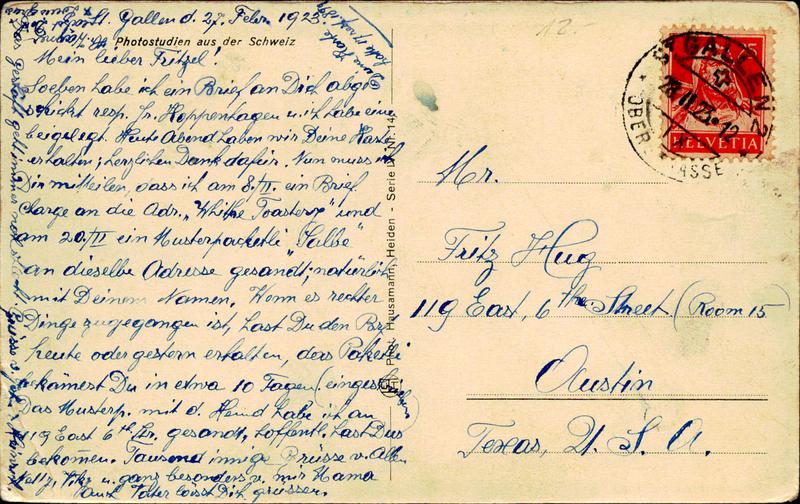 St. Gallen d. 27. Febr. 1923
Photostudien aus der Schweiz
Mein lieber Fritzel!
Soeben habe ich ein Brief an Dich abge
schickt resp. Fr. Hoppenhagen u. ich habe eine
beigelegt. Heute Abend haben wir Deine Kart
erhalten; herzlichen Dank dafür. Nun muss ich
Dir mitteilen, dass ich am 8./II. ein Brief
Charge an die Adr. „White Toasters" und
am 20./II ein Musterpacketli „Salbe"
an dieselbe Adresse gesandt; natürlich
mit Deinem Namen. Wenn es rechter
Dinge zugegangen ist, hast Du den Brief
heute oder gestern erhalten, das Paketli
bekämest Du in etwa 10 Tagen (eingeschrieben)
Das Musterp. mit d. Hemd habe ich an
119 East 6th Str. gesandt, hoffentl. hast Du's
bekommen. Tausend innige Grüsse v. Allen
Nelly, Fritz u. ganz besonders v. mir Mama
Auch Vater lässt Dich grüssen.
Phot. Hausamann, Heiden - Serie
12.-
ST. GALLEN 2
28.II.23.-12
HELVETIA
25
Mr.
Fritz Hug
119 East, 6 the Street (Room 15)
Austin
Texas, U. S. A.